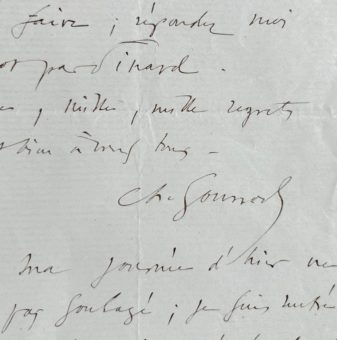 faire ; répondez moi
par Dinard.
, mille, mille regrets
bien à vous tous -
Ch. Gounod
ma journée d'hier ne
pas soulagé ; je suis rentré